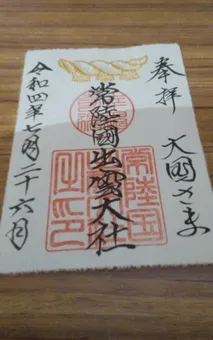 奉拝
大国さま
常陸國出雲大社
常陸国
之印
令和四年七月二十六日